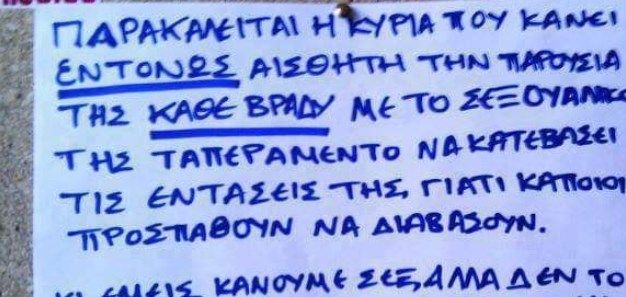 ΠΑΡΑΚΑΛΕΙΤΑΙ Η ΚΥΡΙΑ ΠΟΥ ΚΑΝΕΙ
ΕΝΤΟΝΩΣ ΑΙΣΘΗΤΗ ΤΗΝ ΠΑΡΟΥΣΙΑ
ΤΗΣ ΚΑΘΕ ΒΡΑΔΥ ΜΕ ΤΟ ΣΕΞΟΥΑΛΙΚΟ
ΤΗΣ ΤΑΠΕΡΑΜΕΝΤΟ ΝΑ ΚΑΤΕΒΑΣΕΙ
ΤΙΣ ΕΝΤΑΣΕΙΣ ΤΗΣ, ΓΙΑΤΙ ΚΑΠΟΙΟΙ
ΠΡΟΣΠΑΘΟΥΝ ΝΑ ΔΙΑΒΑΣΟΥΝ.
ΚΙ ΕΜΕΙΣ ΚΑΝΟΥΜΕ ΣΕΞ, ΑΛΛΑ ΔΕΝ ΤΟ